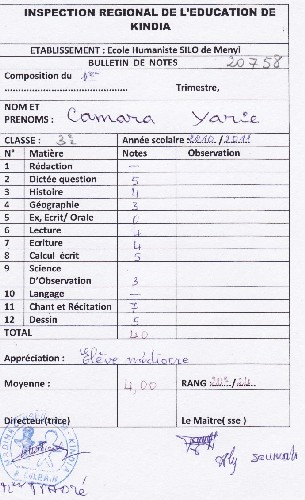 INSPECTION REGIONAL DE L'EDUCATION DE
KINDIA
ETABLISSEMENT : Ecole Humaniste SILO de Menyi
BULLETIN DE NOTES 20758
Composition du
Trimestre,
NOM ET
PRENOMS : Camara Yarie
CLASSE : 3è Année scolaire 2010/2011
N° Matière Notes Observation
1 Rédaction —
2 Dictée question 5
3 Histoire 4
4 Géographie 3
5 Ex, Ecrit/ Orale
6 Lecture 4
7 Ecriture 4
8 Calcul écrit 5
9 Science
D'Observation 3
10 Langage —
11 Chant et Récitation 7
12 Dessin 5
TOTAL 40
Appréciation : Elève médiocre
Moyenne : 4,00 RANG
Directeur(trice) Le Maitre( sse )